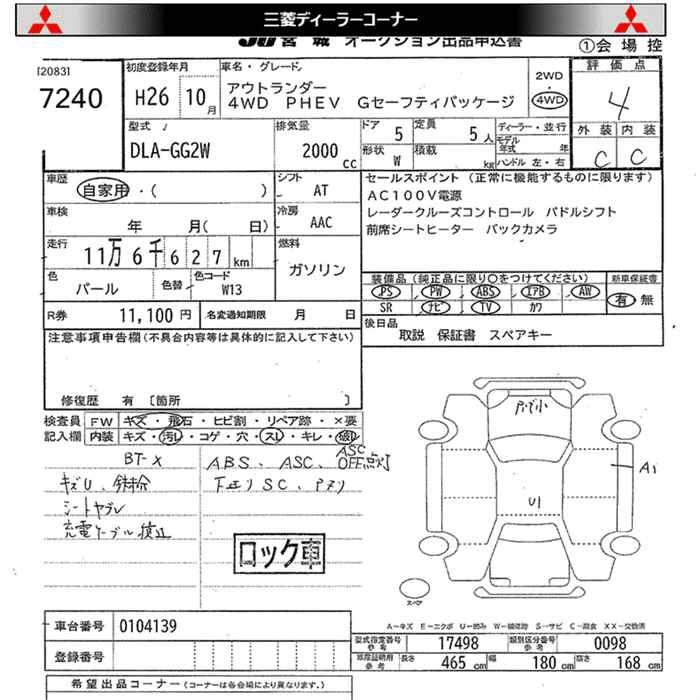 三菱ディーラーコーナー
JU宮城 オークション出品申込書
①会場控
[2083]
7240
初度登録年月
H26 10月
車名・グレード
アウトランダー
4WD PHEV Gセーフティパッケージ
2WD
・
4WD
評価点
4
外装 内装
C C
型式
DLA-GG2W
排気量
2000cc
ドア 5
定員 5人
形状 W
積載 kg
ディーラー・並行
モデル年式 年
ハンドル 左・右
車歴
自家用・( )
シフト AT
車検
年 月( 日)
冷房 AAC
走行
11万6千627km
燃料
ガソリン
色
パール
色替
色コード
W13
R券 11,100円
名変通知期限 月 日
セールスポイント (正常に機能するものに限ります)
AC100V電源
レーダークルーズコントロール パドルシフト
前席シートヒーター バックカメラ
装備品 (純正品に限り○をつけてください)
新車保証書
PS PW ABS エアB AW
有・無
SR ナビ TV カワ
後日品
取説 保証書 スペアキー
注意事項申告欄 (不具合内容等は具体的に記入して下さい)
修復歴 有 [箇所 ]
検査員
記入欄
FW キズ・飛石・ヒビ割・リペア跡・×要
内装 キズ・汚レ・コゲ・穴・スレ・キレ・破レ
BT-X
キズU、鉄粉
シートヤブレ
充電ケーブル
ABS、ASC、ASC OFF点灯
下廻りSC、
ロック車
U1
A1
スペア
車台番号 0104139
登録番号
A-キズ E-エクボ U-凹み W-補修跡 S-サビ C-腐食 XX-交換済
型式指定番号
参考
17498
類別区分番号
参考
0098
車庫証明用
参考
長さ 465cm
幅 180cm
高さ 168cm
希望出品コーナー (コーナーは各会場により異なります。)